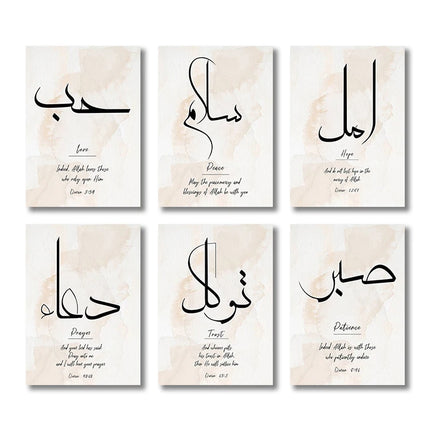 حب
Love
Indeed, Allah loves those
who rely upon Him
Quran 3:159
سلام
Peace
May the peacemercy and
blessings of Allah be with you
امل
Hope
And do not lost hope in the
mercy of Allah
Quran
دعاء
Prayer
And your lord has said
Pray unto me
and I will hear your prayer
Quran
توكل
Trust
And whoever puts
his trust in Allah
then He will suffice him
Quran 65:3
صبر
Patience
Indeed, Allah is with those
who patiently endure
Quran 8:46